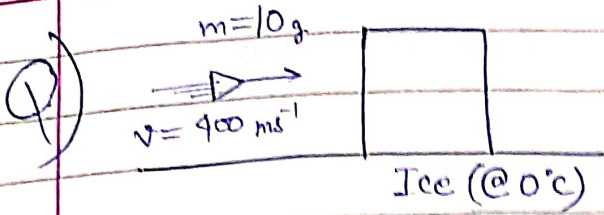 Q)
m=10g.
v= 400 ms⁻¹
Ice (@ 0°C)